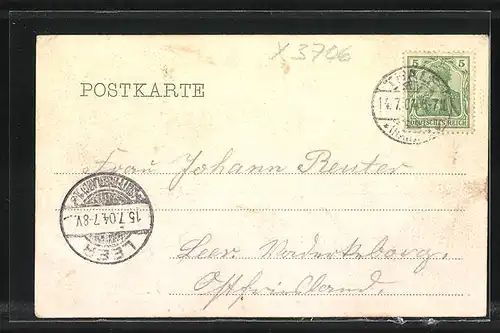 X 3706
5 5
POSTKARTE
THALE
14.7.04.
DEUTSCHES REICH
(HARZ)
Frau Johann Reuter
15.7.04.7-8V.
LEER
Leer
Ostfriesland.